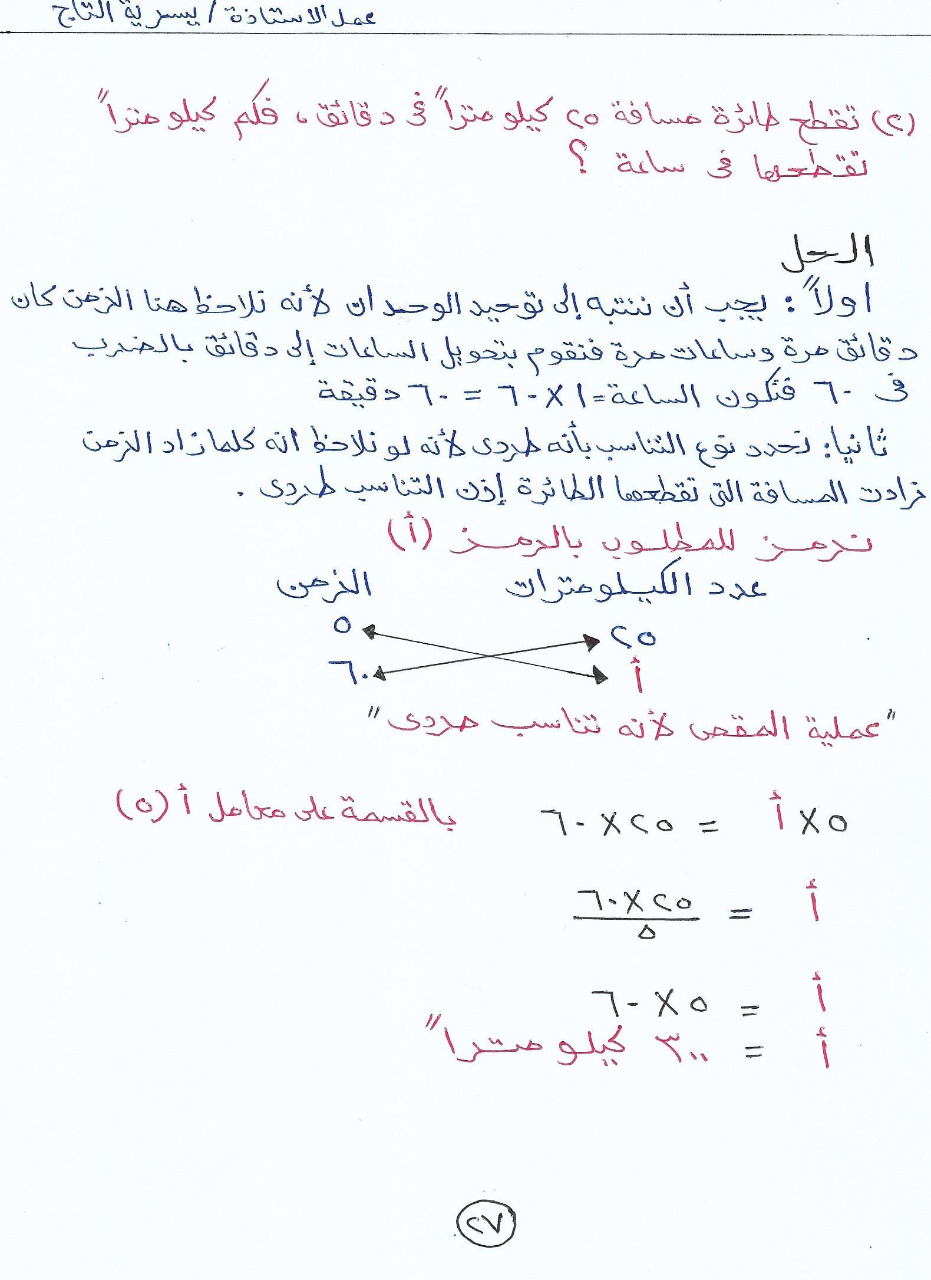 عمل الاستاذة / يسرية التاج
(٢) تقطع طائرة مسافة ٢٥ كيلو متراً فى دقائق، فكم كيلو متراً
تقطعها فى ساعة ؟
الحل
اولاً : يجب أن ننتبه إلى توحيد الوحدان لأنه نلاحظ هنا الزمن كان
دقائق مرة وساعات مرة فنقوم بتحويل الساعات إلى دقائق بالضرب
فى ٦٠ فتكون الساعة = ١ × ٦٠ = ٦٠ دقيقة
ثانيا: نحدد نوع التناسب بأنه طردى لأنه لو نلاحظ انه كلما زاد الزمن
زادت المسافة التى تقطعها الطائرة إذن التناسب طردى .
نرمز للمطلوب بالرمز (أ)
عدد الكيلومترات الزمن
٢٥ ٥
أ ٦٠
"عملية المقص لأنه تناسب طردى"
٥ × أ = ٢٥ × ٦٠ بالقسمة على معامل أ (٥)
أ = ٢٥ × ٦٠
٥
أ = ٥ × ٦٠
أ = ٣٠٠ كيلو متراً
٢٧